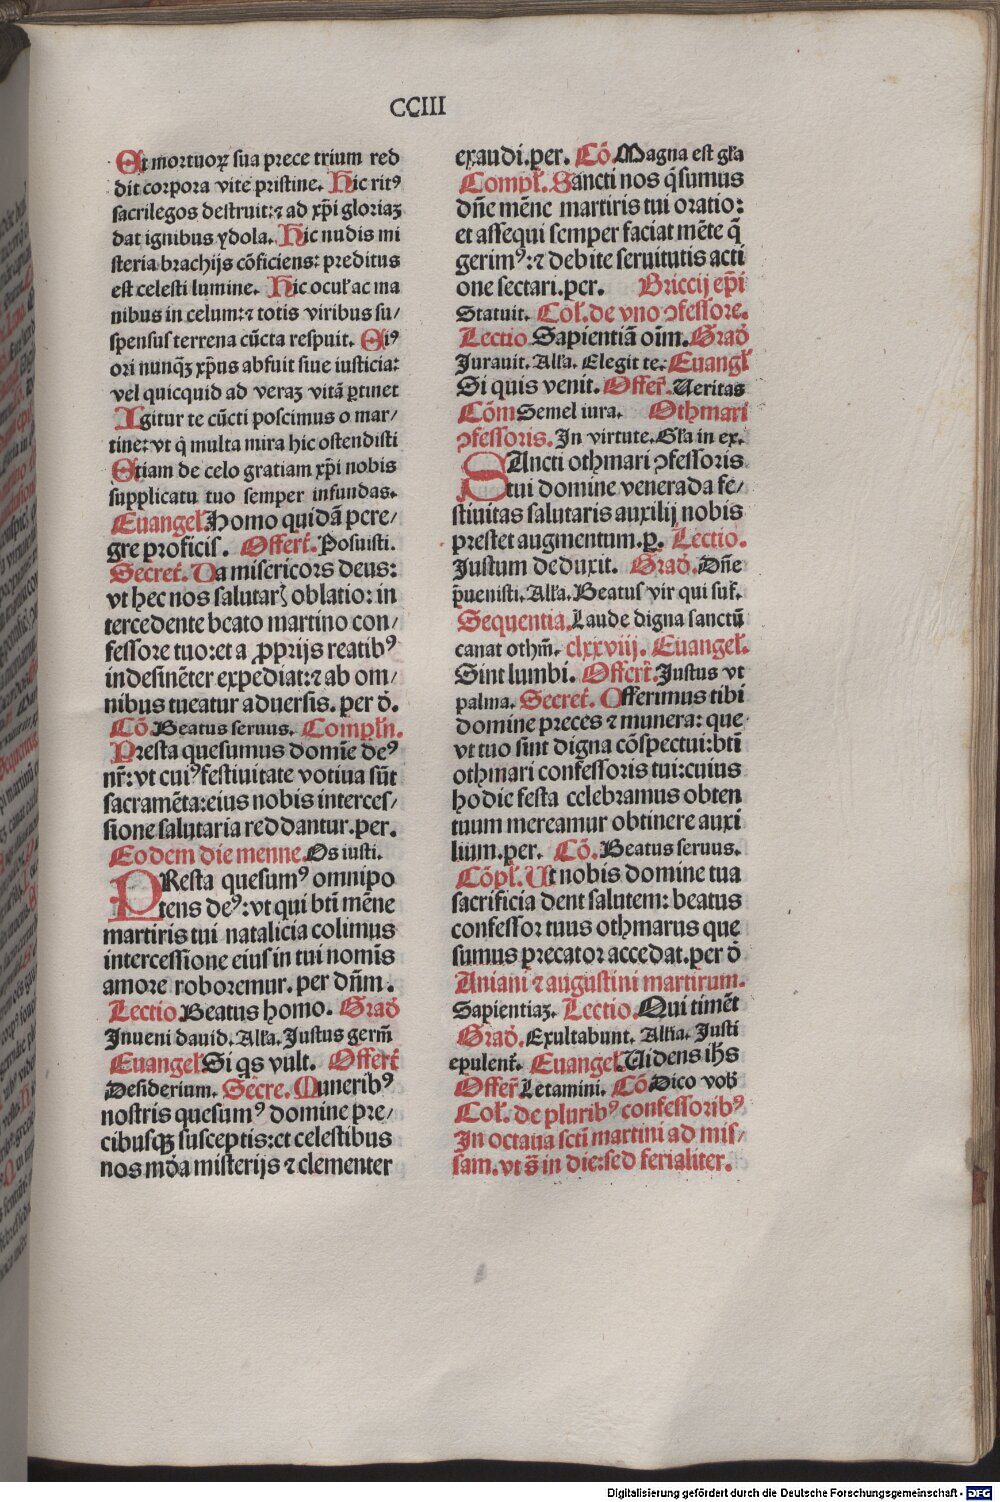 CCIII
Et mortuoꝝ sua prece trium red
dit corpora vite pristine. Hic ritꝰ
sacrilegos destruit:⁊ ad xp̄i gloriaꝫ
dat ignibus ydola. Hic nudis mi
steria brachijs cōficiens: preditus
est celesti lumine. Hic ocul̕ ac ma
nibus in celum:⁊ totis viribus su/
spensus terrena cūcta respuit. Eiꝰ
ori nunqꝫ xp̄us abfuit siue iusticia:
vel quicquid ad veraꝫ vitā ꝑtinet
Igitur te cūcti poscimus o mar/
tine: vt q̄ multa mira hic ostendisti
Etiam de celo gratiam xp̄i nobis
supplicatu tuo semper infundas.
Euangel̕. Homo quidā pere/
gre proficis. Offert̄. Posuisti.
Secret̄. Da misericors deus:
vt hec nos salutar̕ oblatio: in
tercedente beato martino con/
fessore tuo: et a ꝓprijs reatibꝰ
indesinēter expediat:⁊ ab om/
nibus tueatur aduersis. per d̄.
Cō. Beatus seruus. Compl̄n.
Presta quesumus domīe deꝰ
nr̄: vt cuiꝰ festiuitate votiua sūt
sacramēta: eius nobis interces/
sione salutaria reddantur. per.
Eodem die menne. Os iusti.
PResta quesumꝰ omnipo
tens deꝰ: vt qui bt̄i mēne
martiris tui natalicia colimus
intercessione eius in tui nomīs
amore roboremur. per dn̄m.
Lectio. Beatus homo. Grad̕
Inueni dauid. Al̄la. Justus germ̄
Euangel̕ Si qs vult. Offert̄
Desiderium. Secre. Muneribꝰ
nostris quesumꝰ domine pre/
cibusqꝫ susceptis: et celestibus
nos mūda misterijs ⁊ clementer
exaudi. per. Cō. Magna est gl̄a
Compl̄. Sancti nos q̄sumus
dn̄e mēne martiris tui oratio:
et assequi semper faciat mēte q̄
gerimꝰ:⁊ debite seruitutis acti
one sectari. per. Briccij ep̄i
Statuit. Col̄. de vno ꝯfessore.
Lectio Sapientiā oīm. Grad̕
Jurauit. Al̄la. Elegit te. Euangl̄
Si quis venit. Offer̄. Ueritas
Cōm Semel iura. Othmari
ꝯfessoris. In virtute. Gl̄a in ex.
SAncti othmari ꝯfessoris
tui domine veneranda fe/
stiuitas salutaris auxilij nobis
prestet augmentum. ꝑ. Lectio.
Justum deduxit. Grad̕. Dn̄e
p̄uenisti. Al̄la. Beatus vir qui suf̄.
Sequentia. Laude digna sanctū
canat othm̄. clxxviij. Euangel̕.
Sint lumbi. Offert̄. Justus vt
palma. Secret̄. Offerimus tibi
domine preces ⁊ munera: que
vt tuo sint digna cōspectui: bt̄i
othmari confessoris tui: cuius
hodie festa celebramus obten
tuum mereamur obtinere auxi
lium. per. Cō. Beatus seruus.
Cōpl̄. Ut nobis domine tua
sacrificia dent salutem: beatus
confessor tuus othmarus que
sumus precator accedat. per d̄
Aniani ⁊ augustini martirum.
Sapientiaꝫ. Lectio. Qui timēt
Grad̕. Exultabunt. Al̄la. Justi
epulent̄. Euangel̕. Uidens ih̄s
Offer̄ Letamini. Cō. Dico vob̕
Col̄. de pluribꝰ confessoribꝰ
In octaua sct̄i martini ad mis/
sam. vt s̄ in die: sed ferialiter.
Digitalisierung gefördert durch die Deutsche Forschungsgemeinschaft - DFG